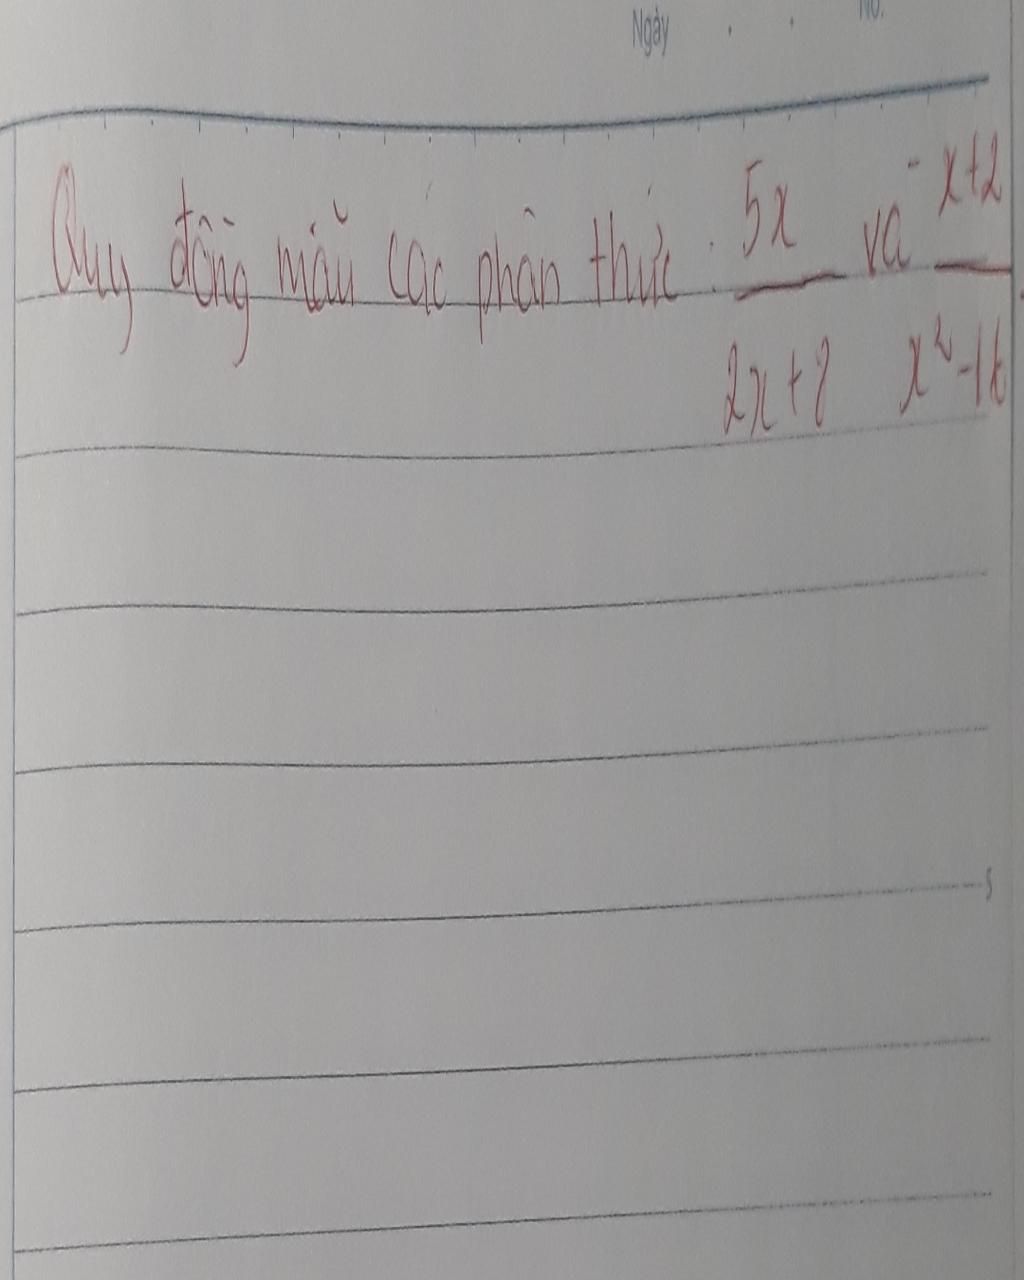 Ngày . . No.
Quy đồng mẫu các phân thức : 5x/2x+8 và x+2/x²-16